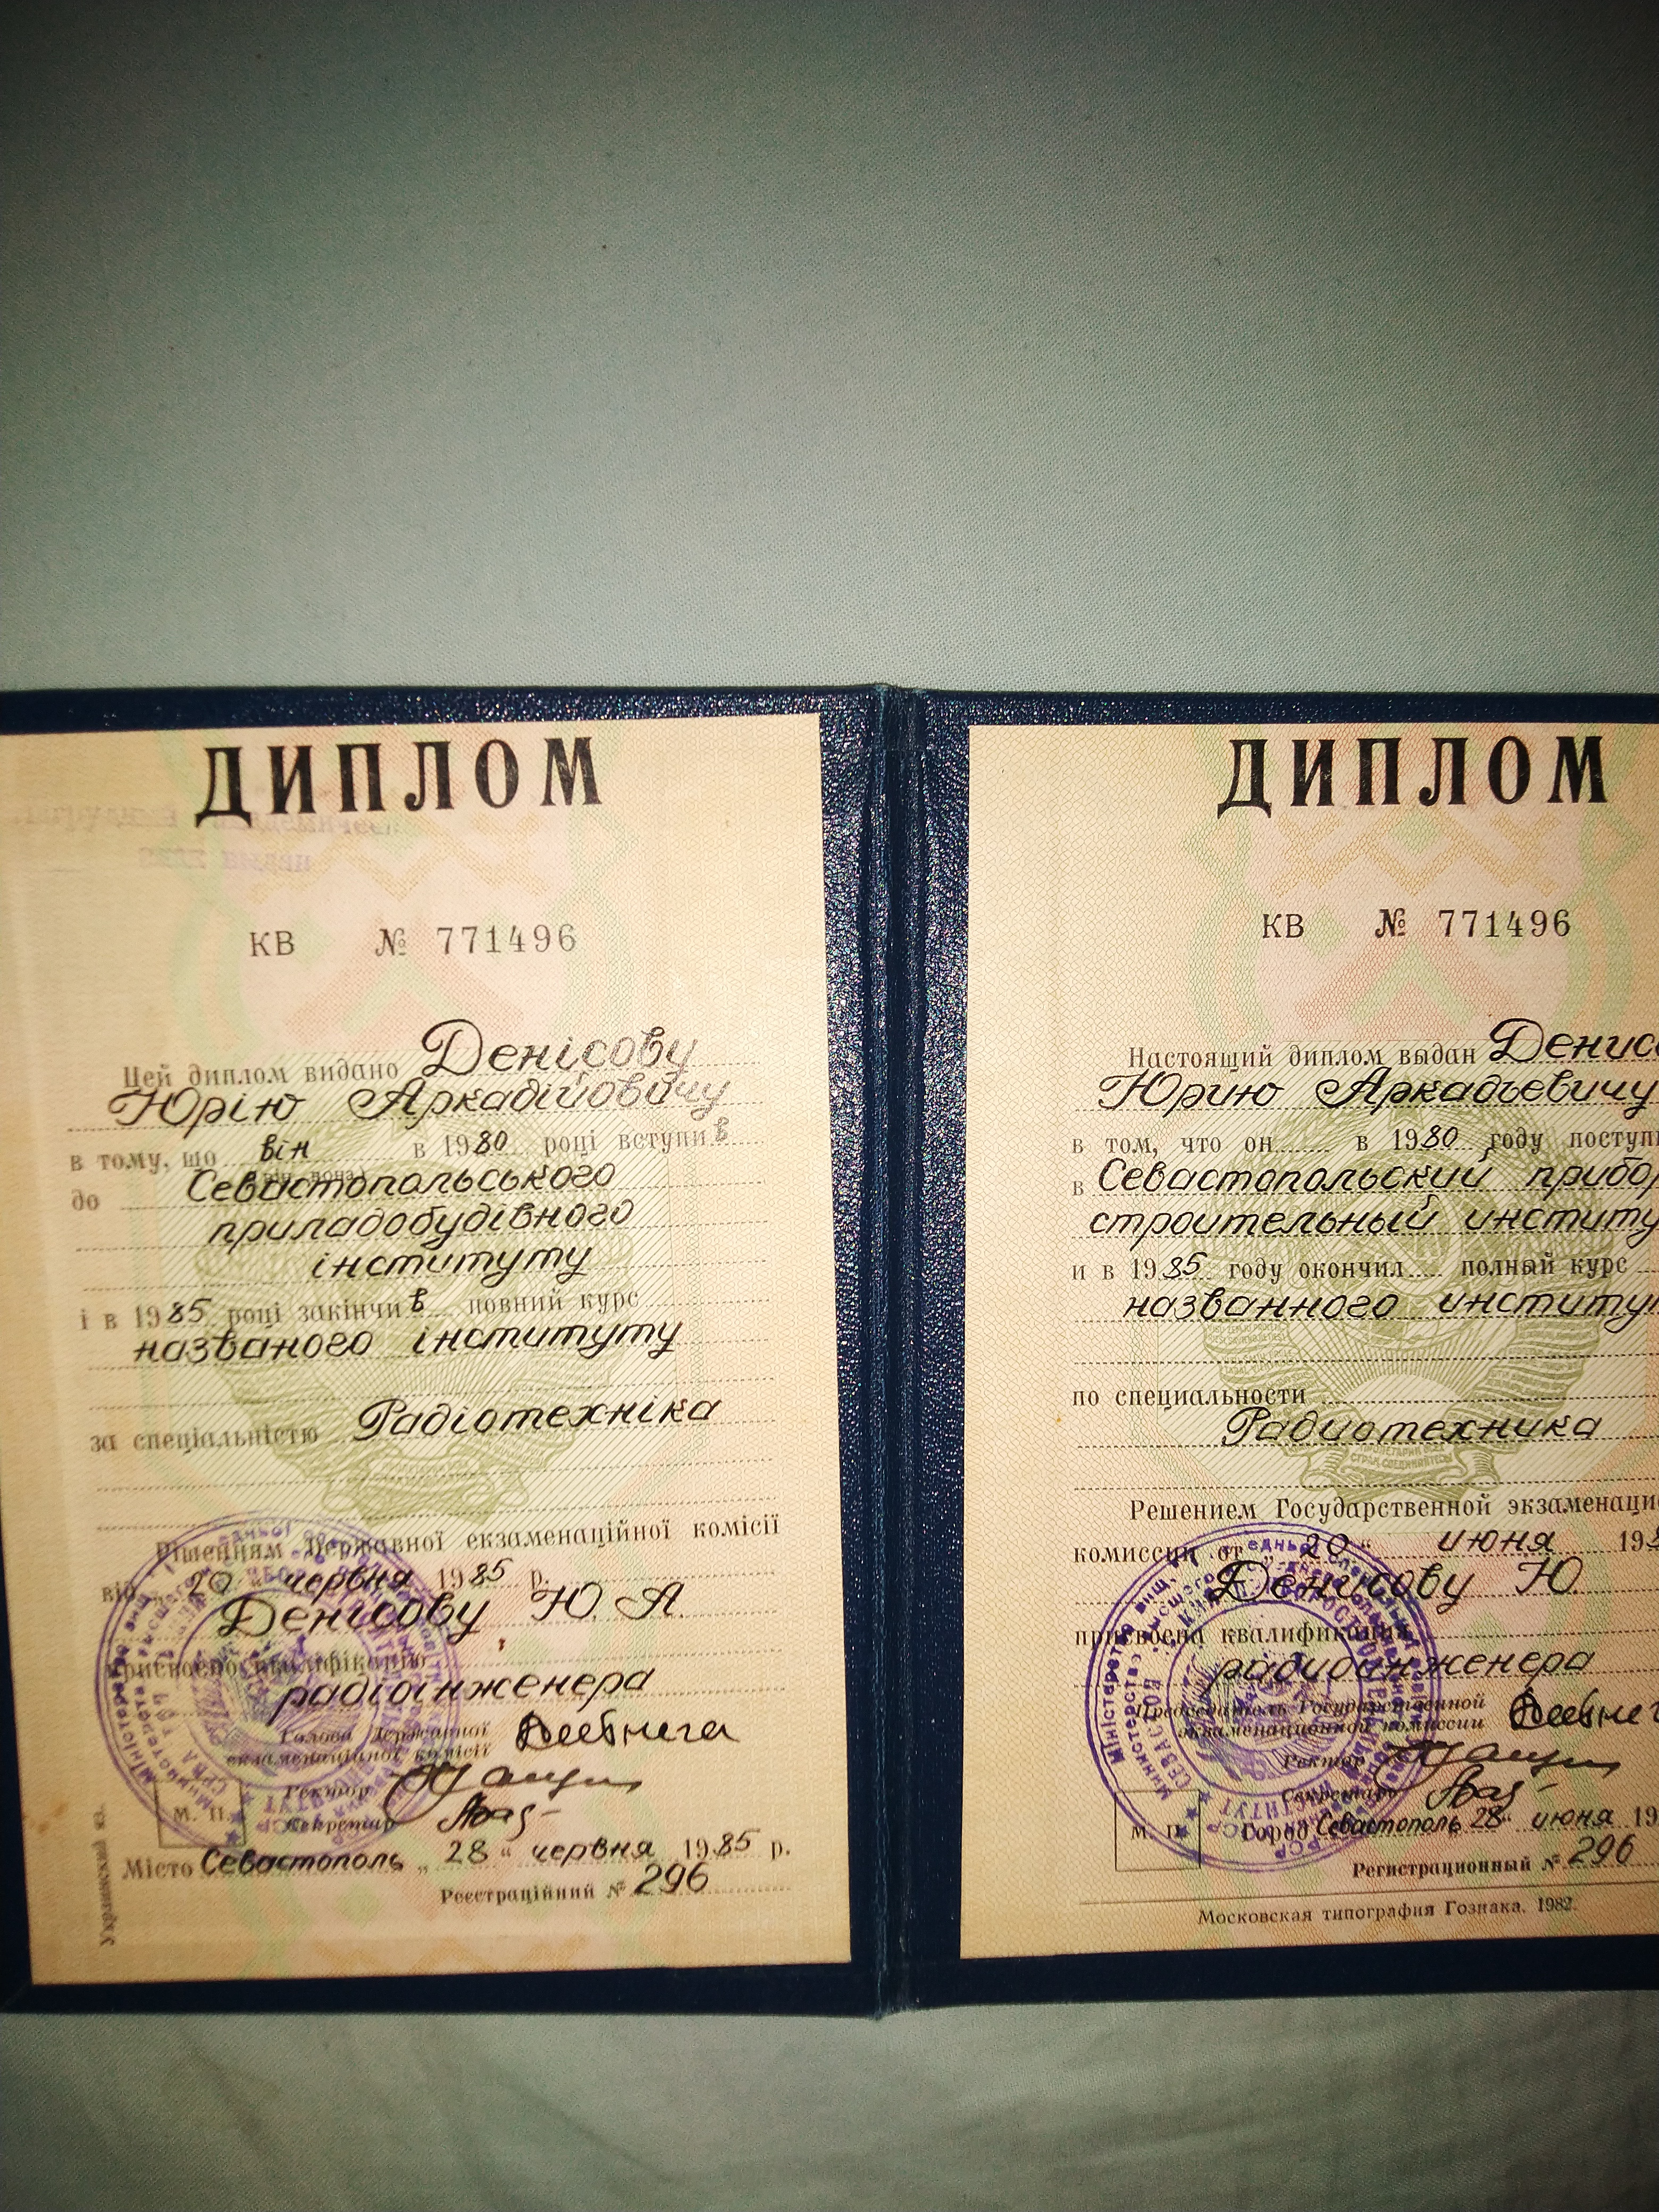 ДИПЛОМ
КВ № 771496
Цей диплом видано Денісову
Юрію Аркадійовичу
в тому, що він в 1980 році вступив
до Севастопольського
приладобудівного
інституту
і в 1985 році закінчив повний курс
названого інституту
за спеціальністю Радіотехніка
Рішенням Державної екзаменаційної комісії
від 20 червня 1985 р.
Денісову Ю. А.
присвоєно кваліфікацію
радіоінженера
Голова Державної
екзаменаційної комісії
Ректор
Секретар
М. П.
Місто Севастополь „28“ червня 1985 р.
Реєстраційний № 296
Украинский яз.
ДИПЛОМ
КВ № 771496
Настоящий диплом выдан Денис
Юрию Аркадьевичу
в том, что он в 1980 году поступи
в Севастопольский прибор
строительный институ
и в 1985 году окончил полный курс
названного институ
по специальности
Радиотехника
Решением Государственной экзаменаци
комиссии от „20“ июня 198
Денисову Ю
присвоена квалификация
радиоинженера
Председатель Государственной
экзаменационной комиссии
Ректор
Секретарь
М. П.
Город Севастополь 28“ июня 19
Регистрационный № 296
Московская типография Гознака. 1982.